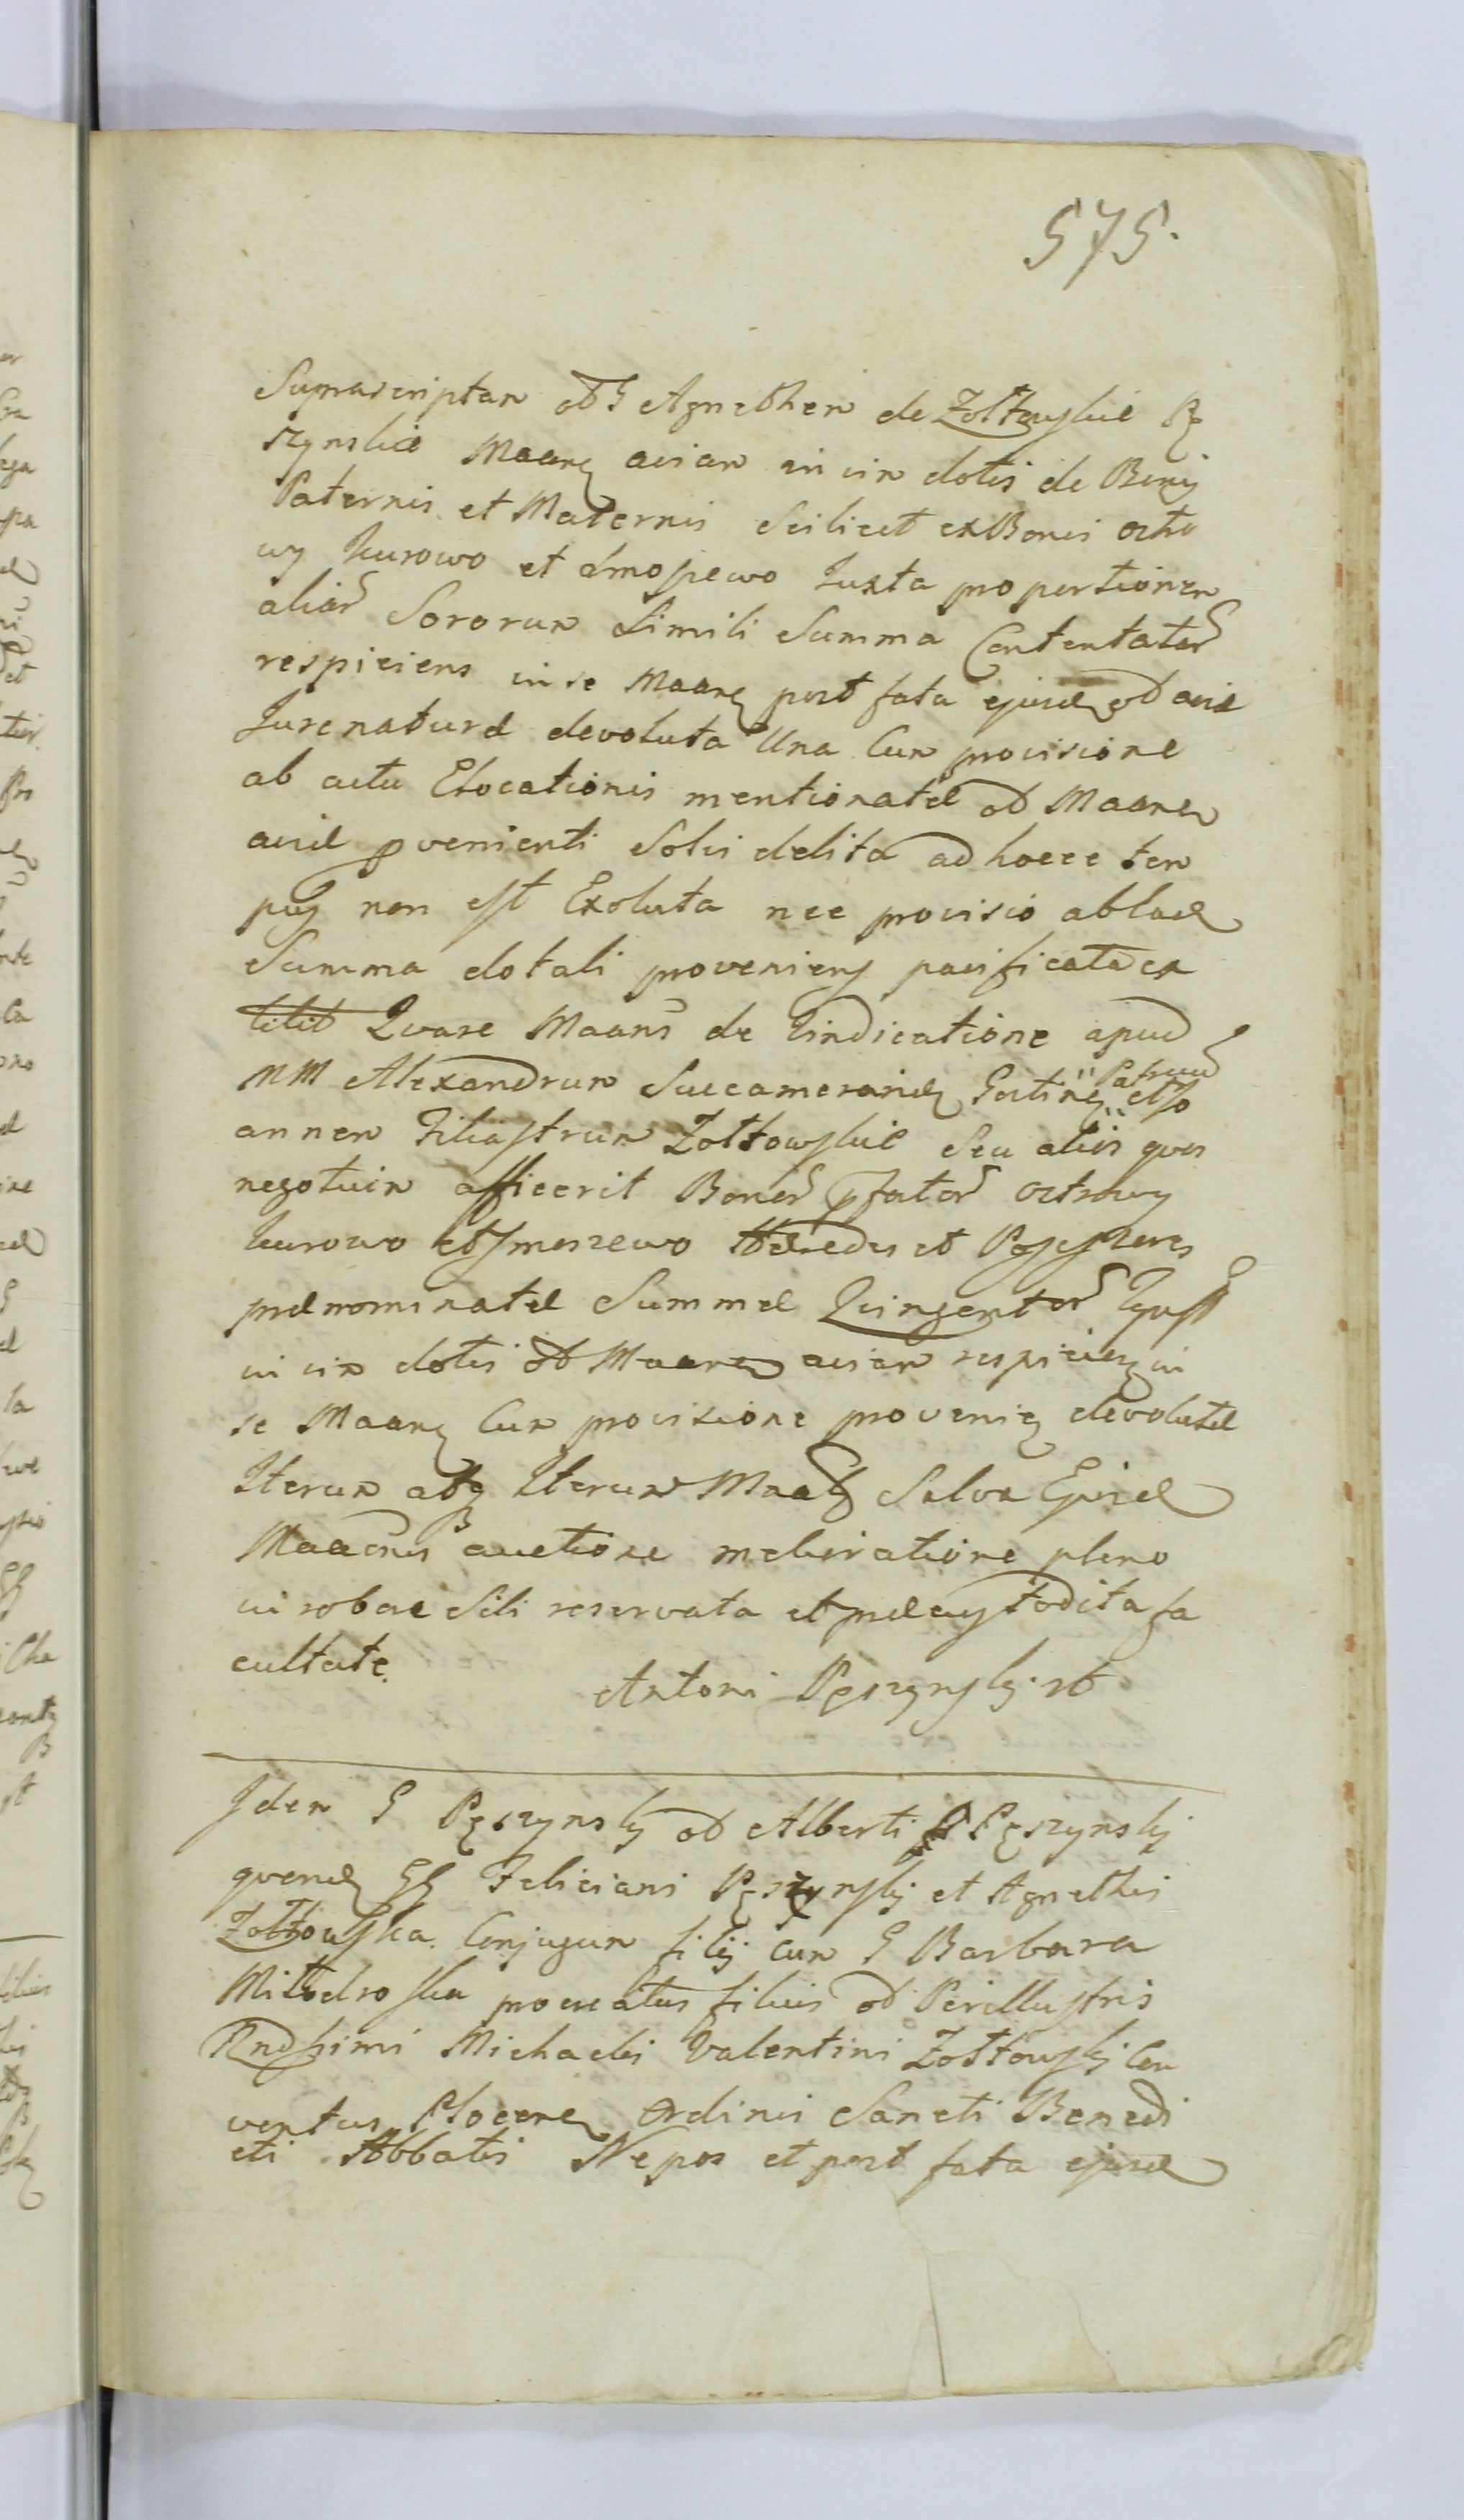 575.
Suprascriptan ad G Agnethen de Zołtowskie Pę
szynskie Maanę avian in vin dotis de Bonis
Paternis et Maternis Scilicet ex Bonis ostro
wy kurowo et Smoszewo Iuxta proportionen
aliar Sororun Simili Summa Contentatar
respiciens in se Maanę post fata ejusd ad avie
Jure nature devoluta Una Cun provisione
ab actu Elocationis mentionate ad Maanen
avie pvenienti Solvi debita ad hocce ten
pus non est Exoluta nec provisio ab ead
Summa dotali proveniens pacificata ex
titit Quare Maans de Vindicatione apud
MM Alexandrun Succamerarid Gostinen Patruu et Jo
annen Filiastrun Zołtowskie Seu aliis quos
negotuin afficerit Bonor pfator ostrowy
kurowo et Smoszewo Heredes et Possessores
prenominate Summe Quingentor
in vin dotis ad Maanen avian respicien in
se Maanę Cun provisione provenię devolute
Iterun atq Iterun Maatg Salva Ejusd
Maaonis auctione melioratione pleno
in robore Sibi reservata et precustodita fa
cultate.
Antoni Pęszynsky
Iden G Pęszynsky ad Alberti Pęszynsky
quend GG Feliciani Pęszynsky et Agnethis
Zołtowska Conjugun filij cun G Barbara
Mitodroska procreatus filius ad Perillustris
Rndssimi Michaelis Valentini Zołtowsky Con
ventus Plocene Ordinis Sancti Benedi
cti Abbatis Nepos et post fata ejusd